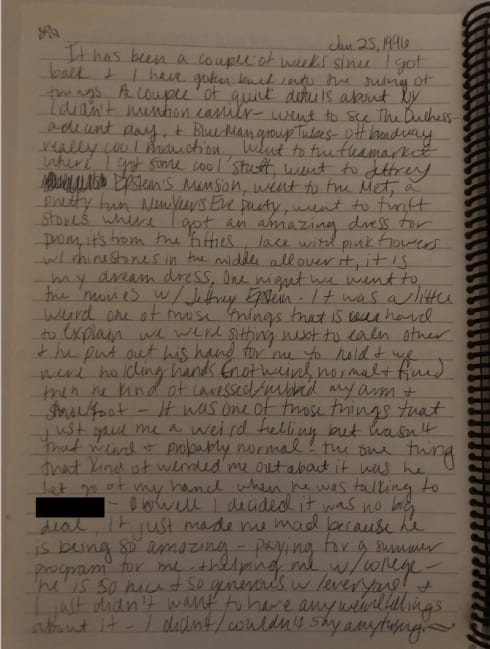 Jan 25, 1996
It has been a couple of weeks since I got
back & I have gotten back into the swing of
things. A couple of quick details about NY
I didn't mention earlier - went to see The Duchess -
a decent play, & Blue Man group Tubes - Off broadway
really cool production, went to the fleamarket
where I got some cool stuff, went to Jeffrey
Epstein's Mansion, went to the Met, a
pretty fun New Years Eve party, went to thrift
stores where I got an amazing dress for
prom, it's from the fifties, lace with pink flowers
w/ rhinestones in the middle all over it, it is
my dream dress. One night we went to
the movies w/ Jeffrey Epstein - It was a little
weird one of those things that is hard
to explain we were sitting next to each other
& he put out his hand for me to hold & we
were holding hands (not weird, normal & fine)
then he kind of caressed/rubbed my arm &
shoe/foot - It was one of those things that
just gave me a weird felling but wasn't
that weird & probably normal - the one thing
that kind of weirded me out about it was he
let go of my hand when he was talking to
- Oh well I decided it was no big
deal, It just made me mad because he
is being so amazing - paying for a summer
program for me & helping me w/ college -
he is so nice & so generous w/ everyone &
I just didn't want to have any weird fellings
about it - I didn't/couldn't say anything.